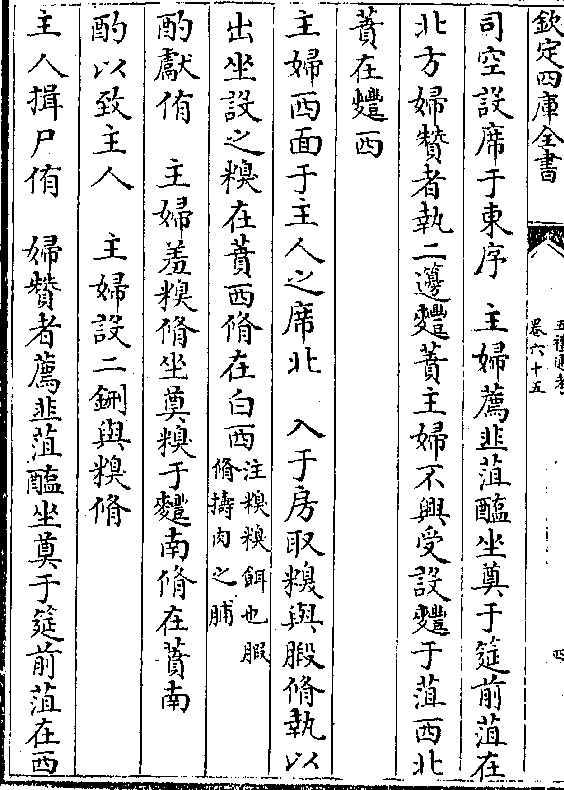 欽定四庫全書
五禮通考
卷六十五
四
司空設席于東序　主婦薦韭菹醢坐奠于筵前菹在
北方婦贊者執二籩麷蕡主婦不興受設麷于菹西北
蕡在麷西
主婦西面于主人之席北　入于房取糗與腶脩執以
出坐設之糗在蕡西脩在白西注糗糗餌也腶脩擣肉之脯
酌獻侑　主婦羞糗脩坐奠糗于麷南脩在蕡南
酌以致主人　主婦設二鉶與糗脩
主人揖尸侑　婦贊者薦韭菹醢坐奠于筵前菹在西